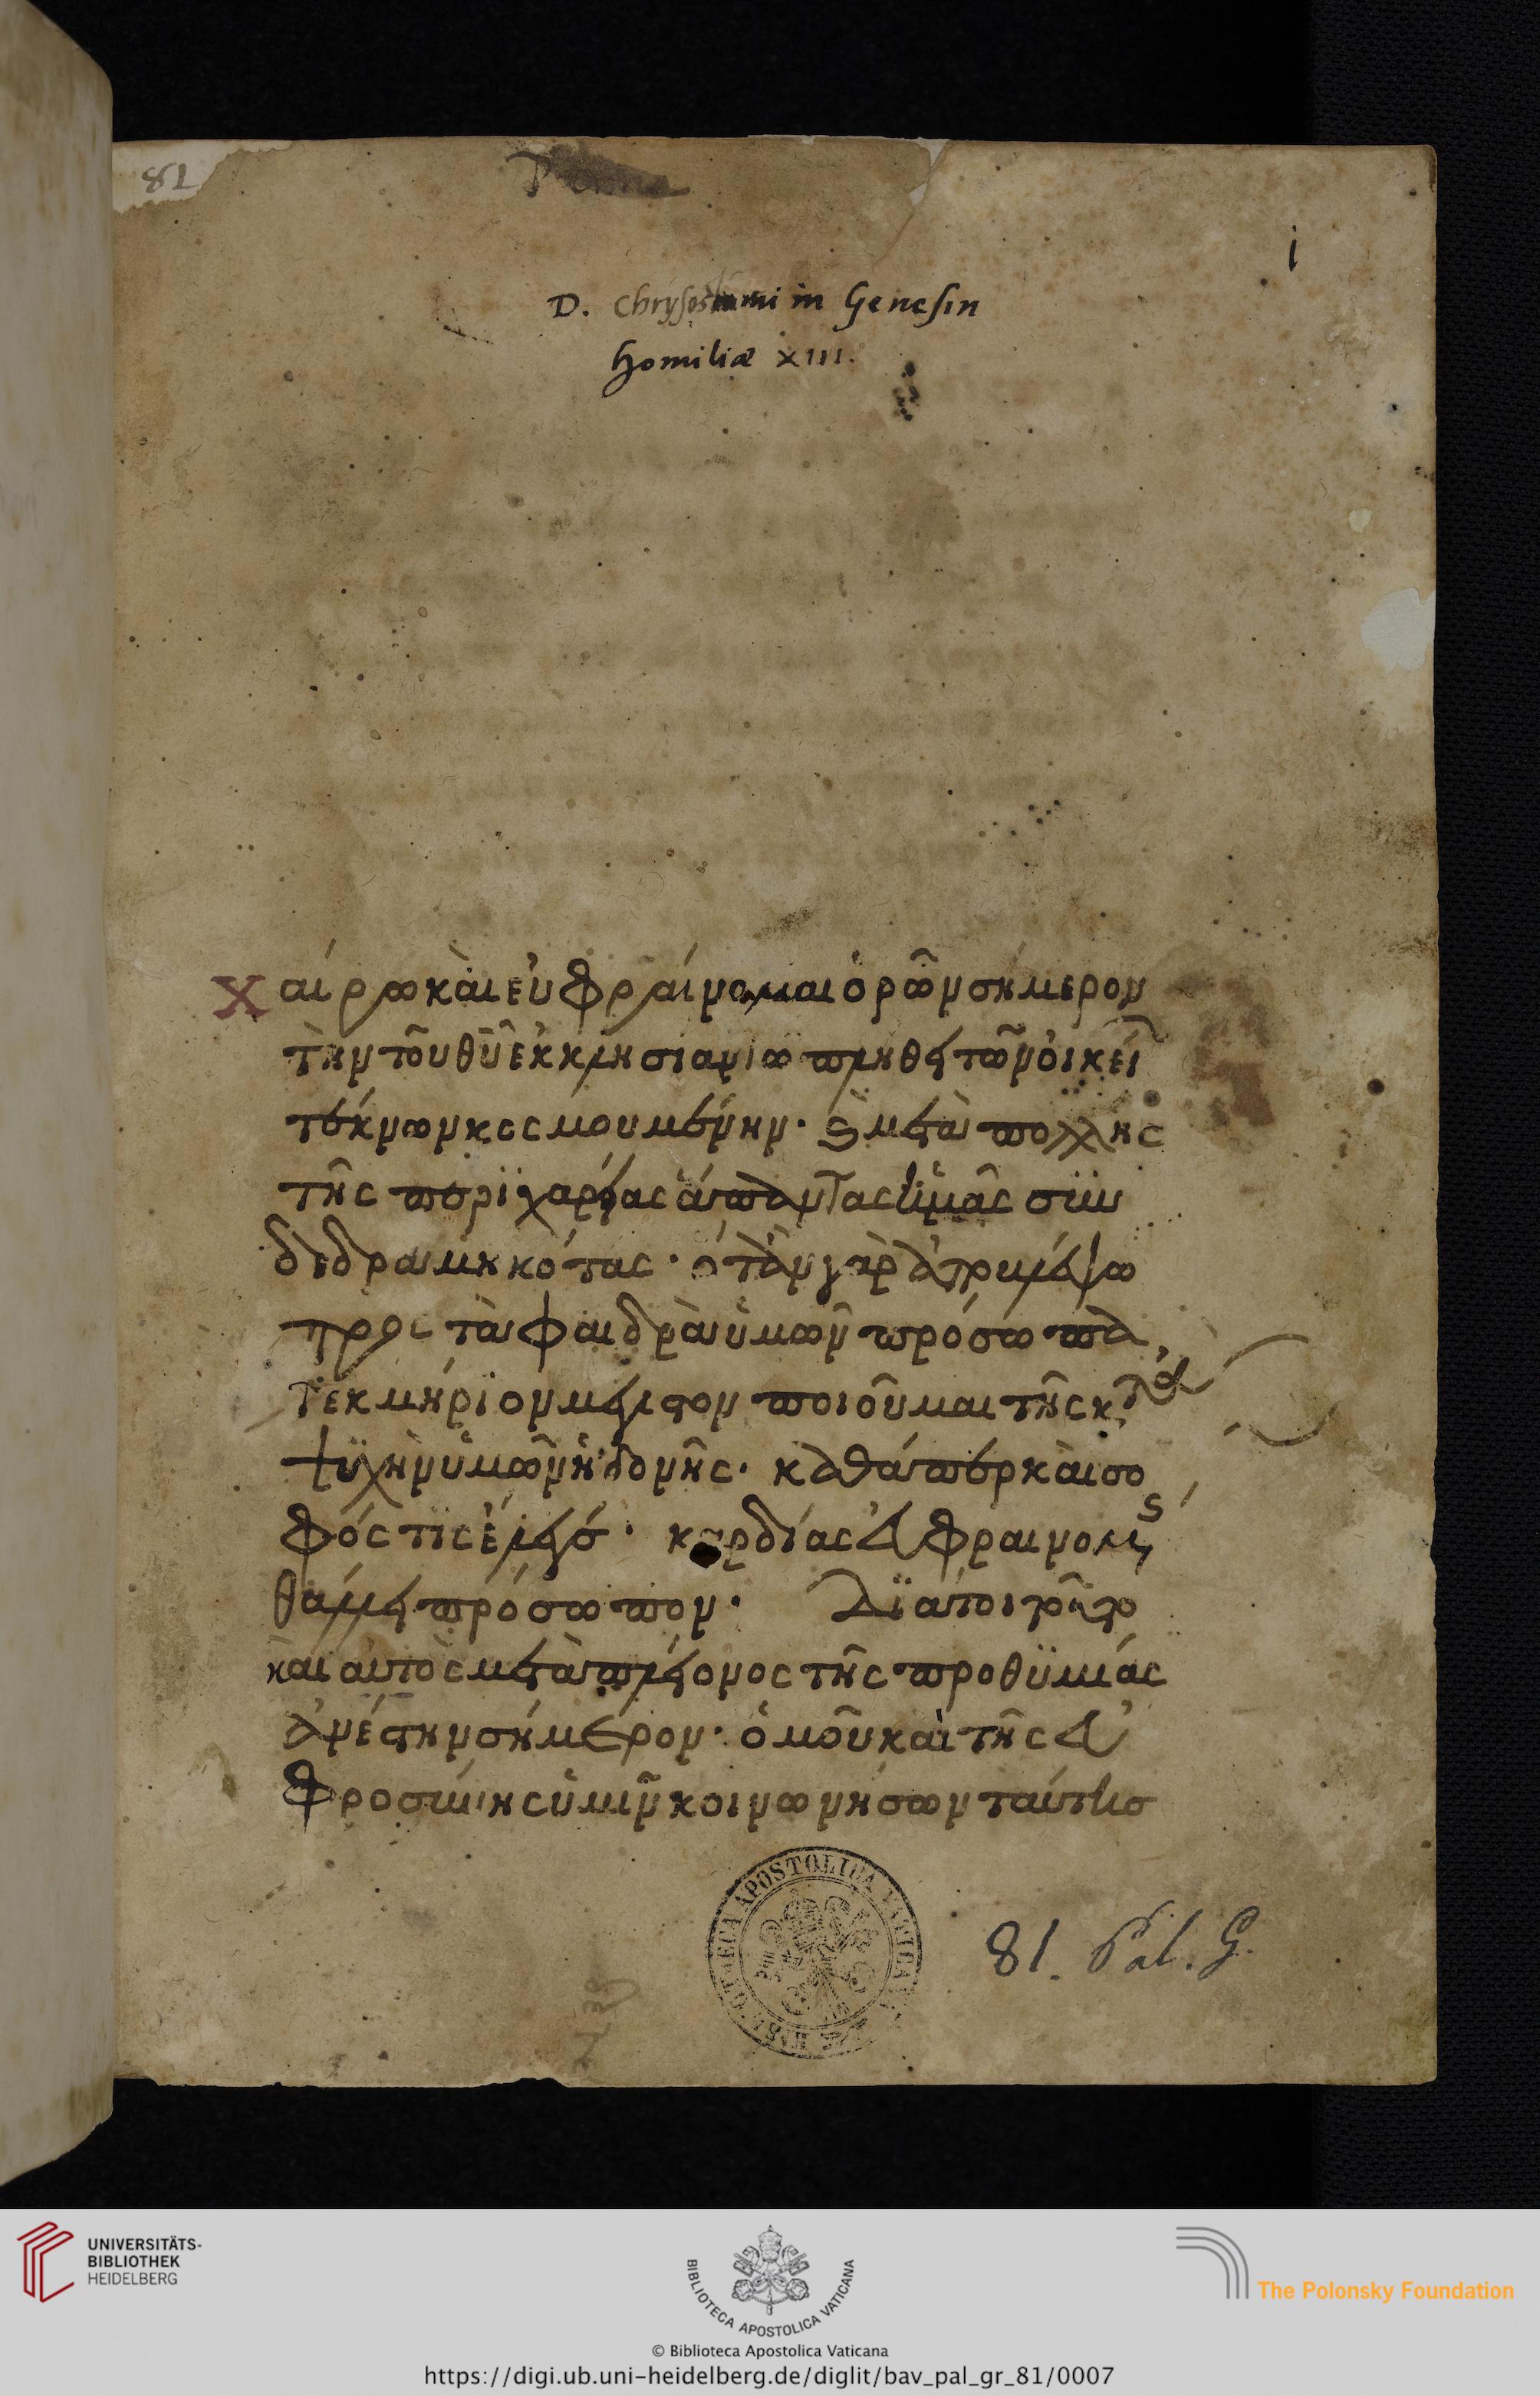 81
i
D. Chrysostomi in Genesin
Homiliæ XIII.
Χαίρω καὶ εὐφραίνομαι ὁρῶν σήμερον
τὴν τοῦ θῦ ἐκκλησίαν τῶ πλήθει τῶν οἰκεί
τέκνων κοσμουμένην· καὶ μετὰ πολλῆς
τῆς περιχαρείας ἅπαντας ὑμᾶς συν
δεδραμηκότας· ὅταν γὰρ ἀπίδω
πρὸς τὰ φαιδρὰ ὑμῶν πρόσωπα,
τεκμήριον μέγιστον ποιοῦμαι τῆς κτὰ
ψυχὴν ὑμῶν ἡδονῆς· καθάπερ καὶ σο
φός τις ἔλεγε· καρδίας εὐφραινομένης
θάλλει πρόσωπον· Διά τοι τοῦτο
καὶ αὐτὸς μετὰ πλείονος τῆς προθυμίας
ἀνέστην σήμερον· ὁμοῦ καὶ τῆς εὐ
φροσύνης ὑμῖν κοινωνήσων ταύτης
81. Pal. G.
UNIVERSITÄTS-
BIBLIOTHEK
HEIDELBERG
BIBLIOTECA APOSTOLICA VATICANA
The Polonsky Foundation
© Biblioteca Apostolica Vaticana
https://digi.ub.uni-heidelberg.de/diglit/bav_pal_gr_81/0007